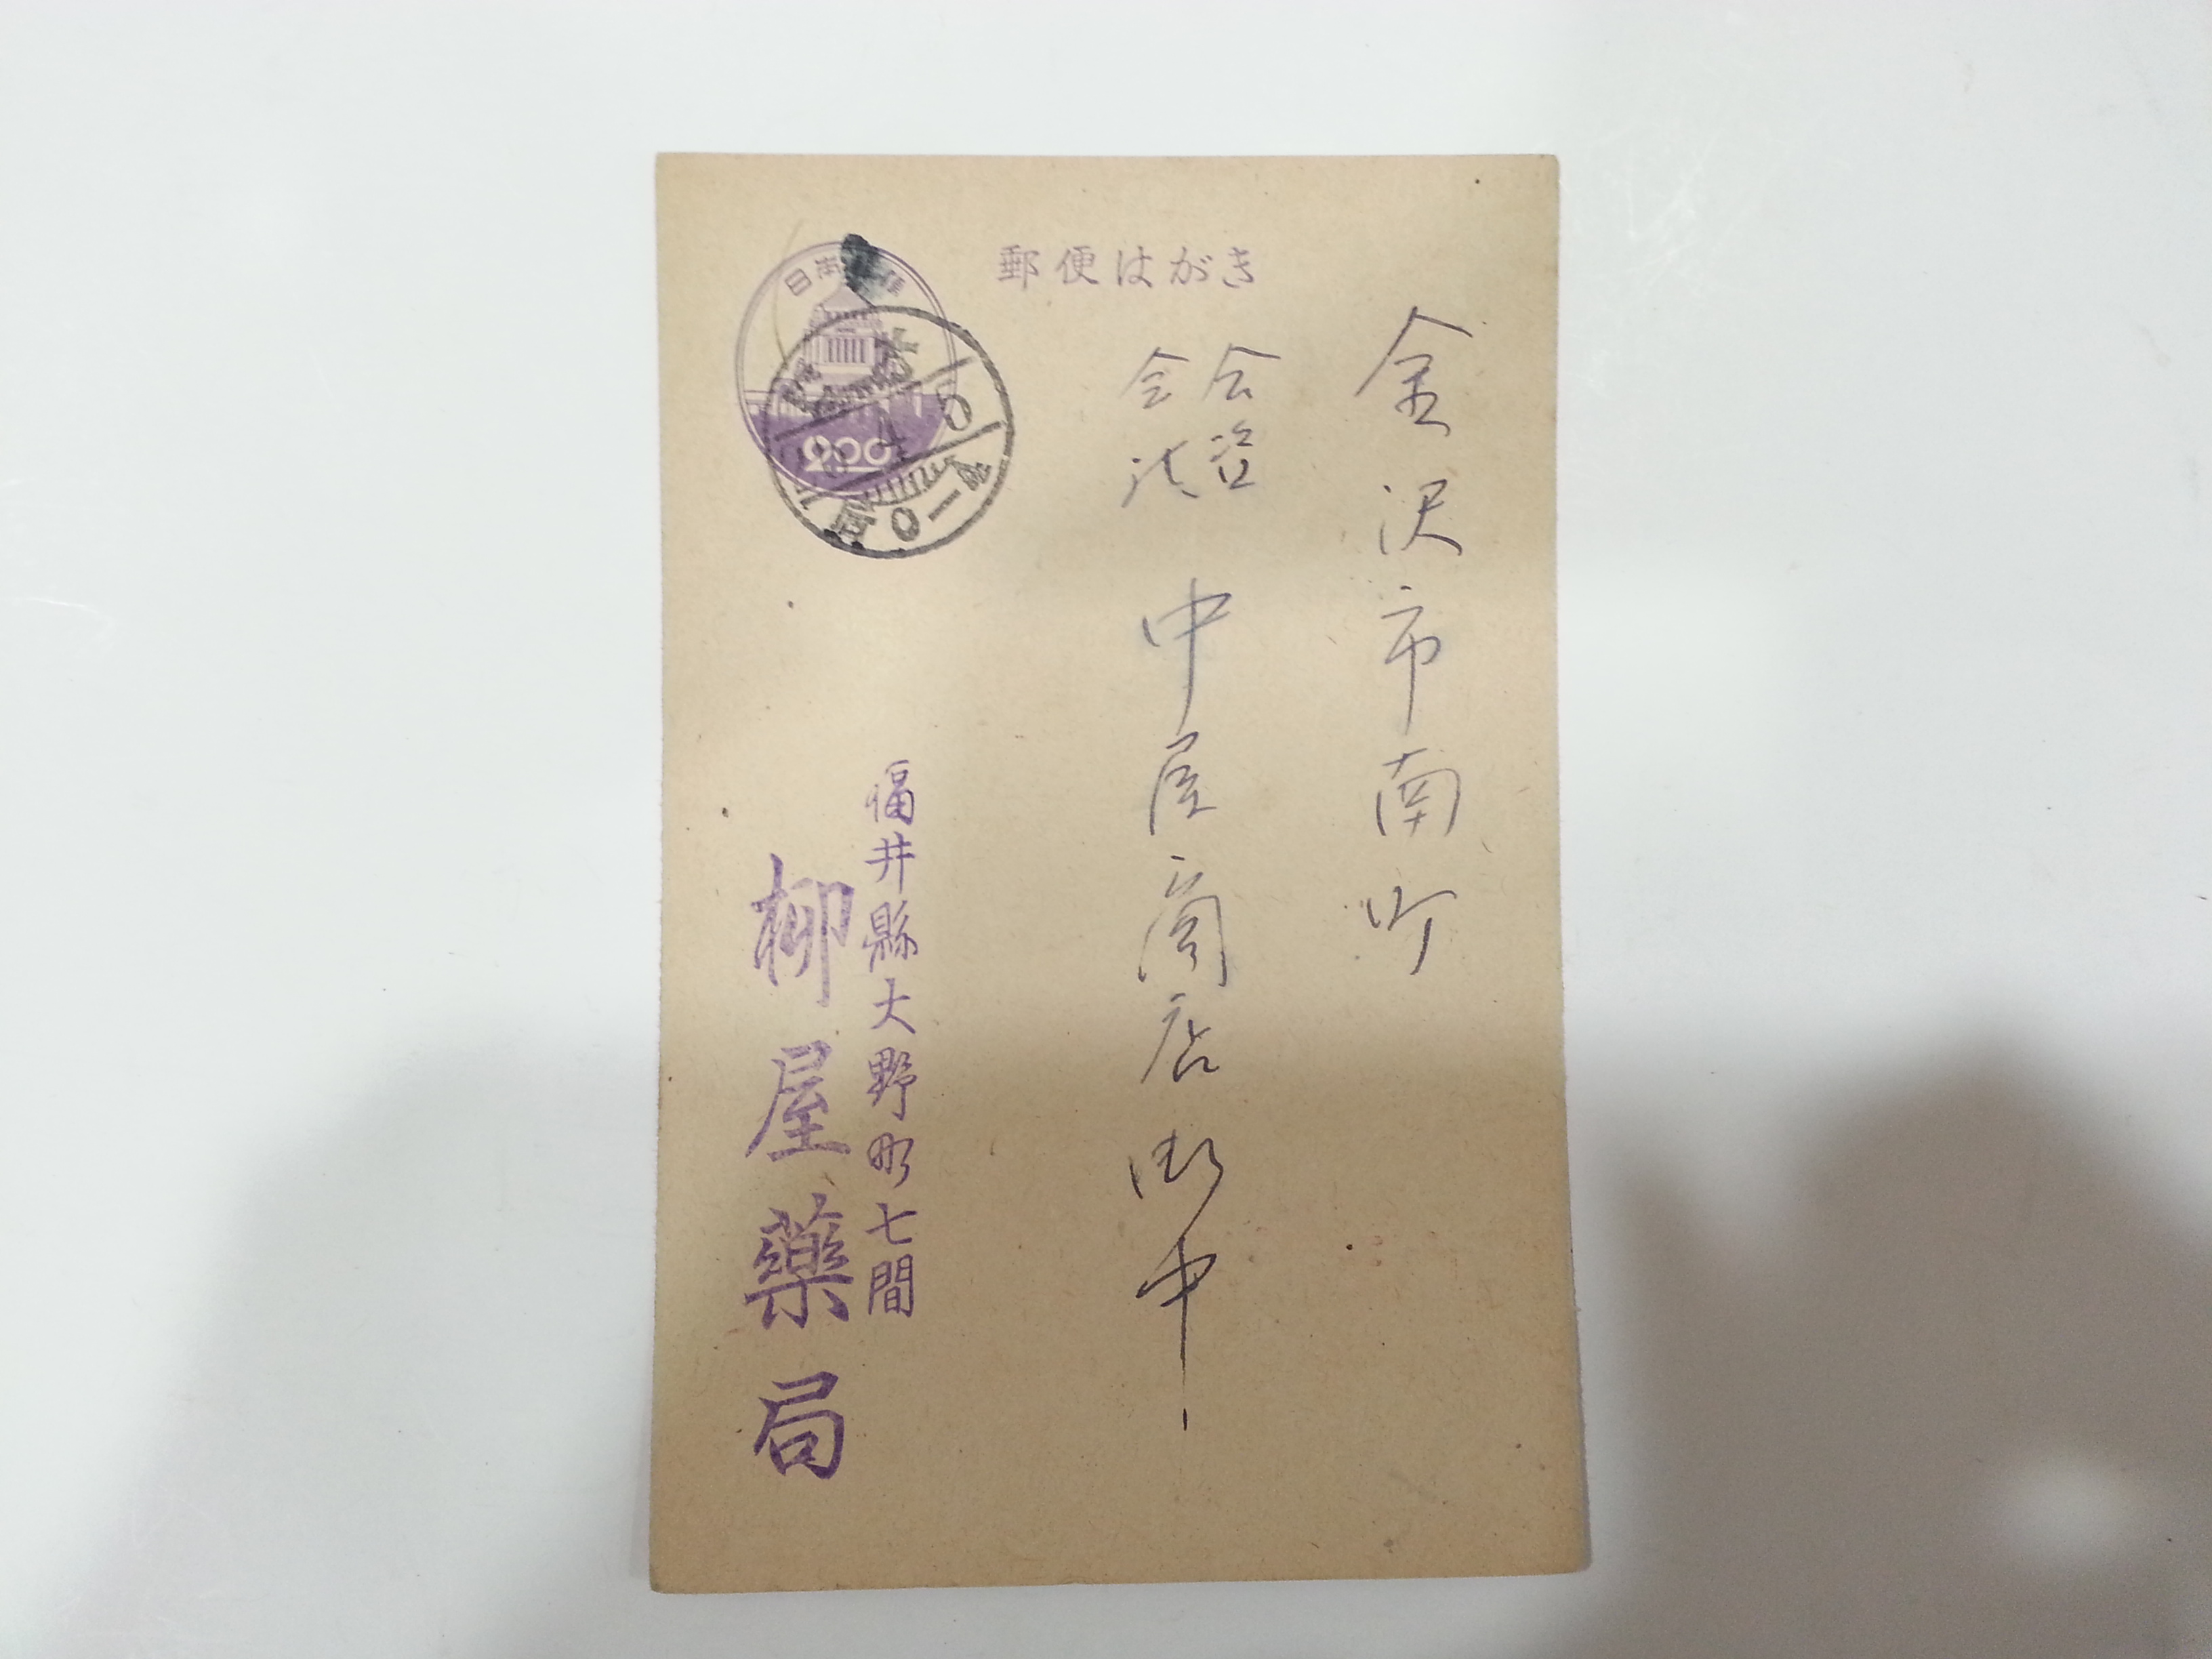 郵便はがき
金沢市南町
中屋商店御中
福井縣大野町七間
柳屋藥局
日本
2.00